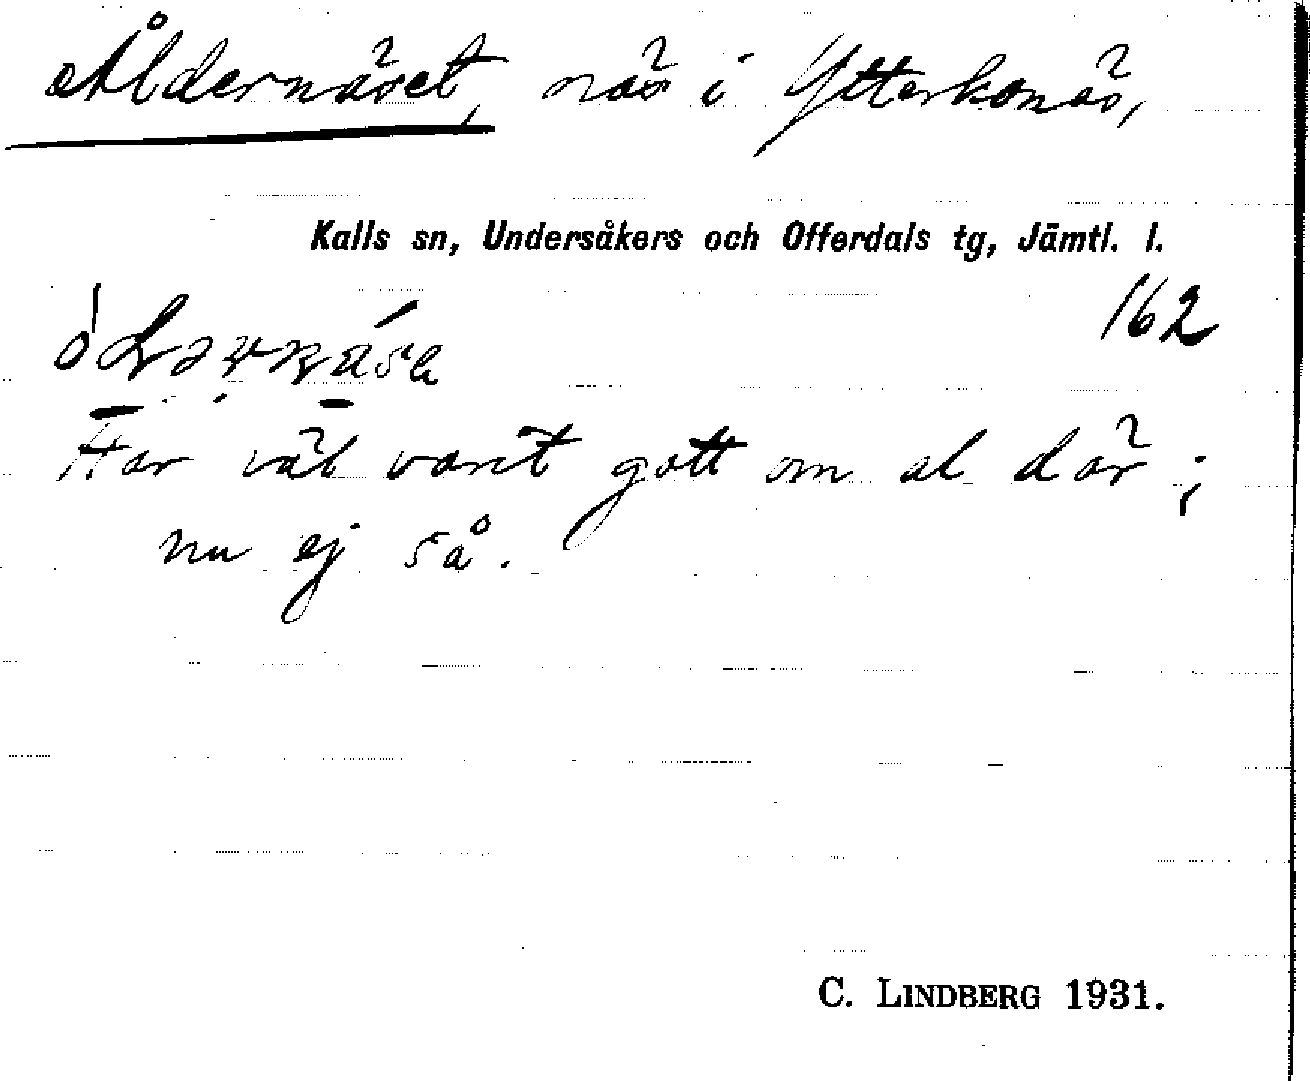 Åldernäset, näs i Ytterkonäs,
Kalls sn, Undersåkers och Offerdals tg, Jämtl. l.
162
Har väl varit gott om al där;
nu ej så.
C. LINDBERG 1931.